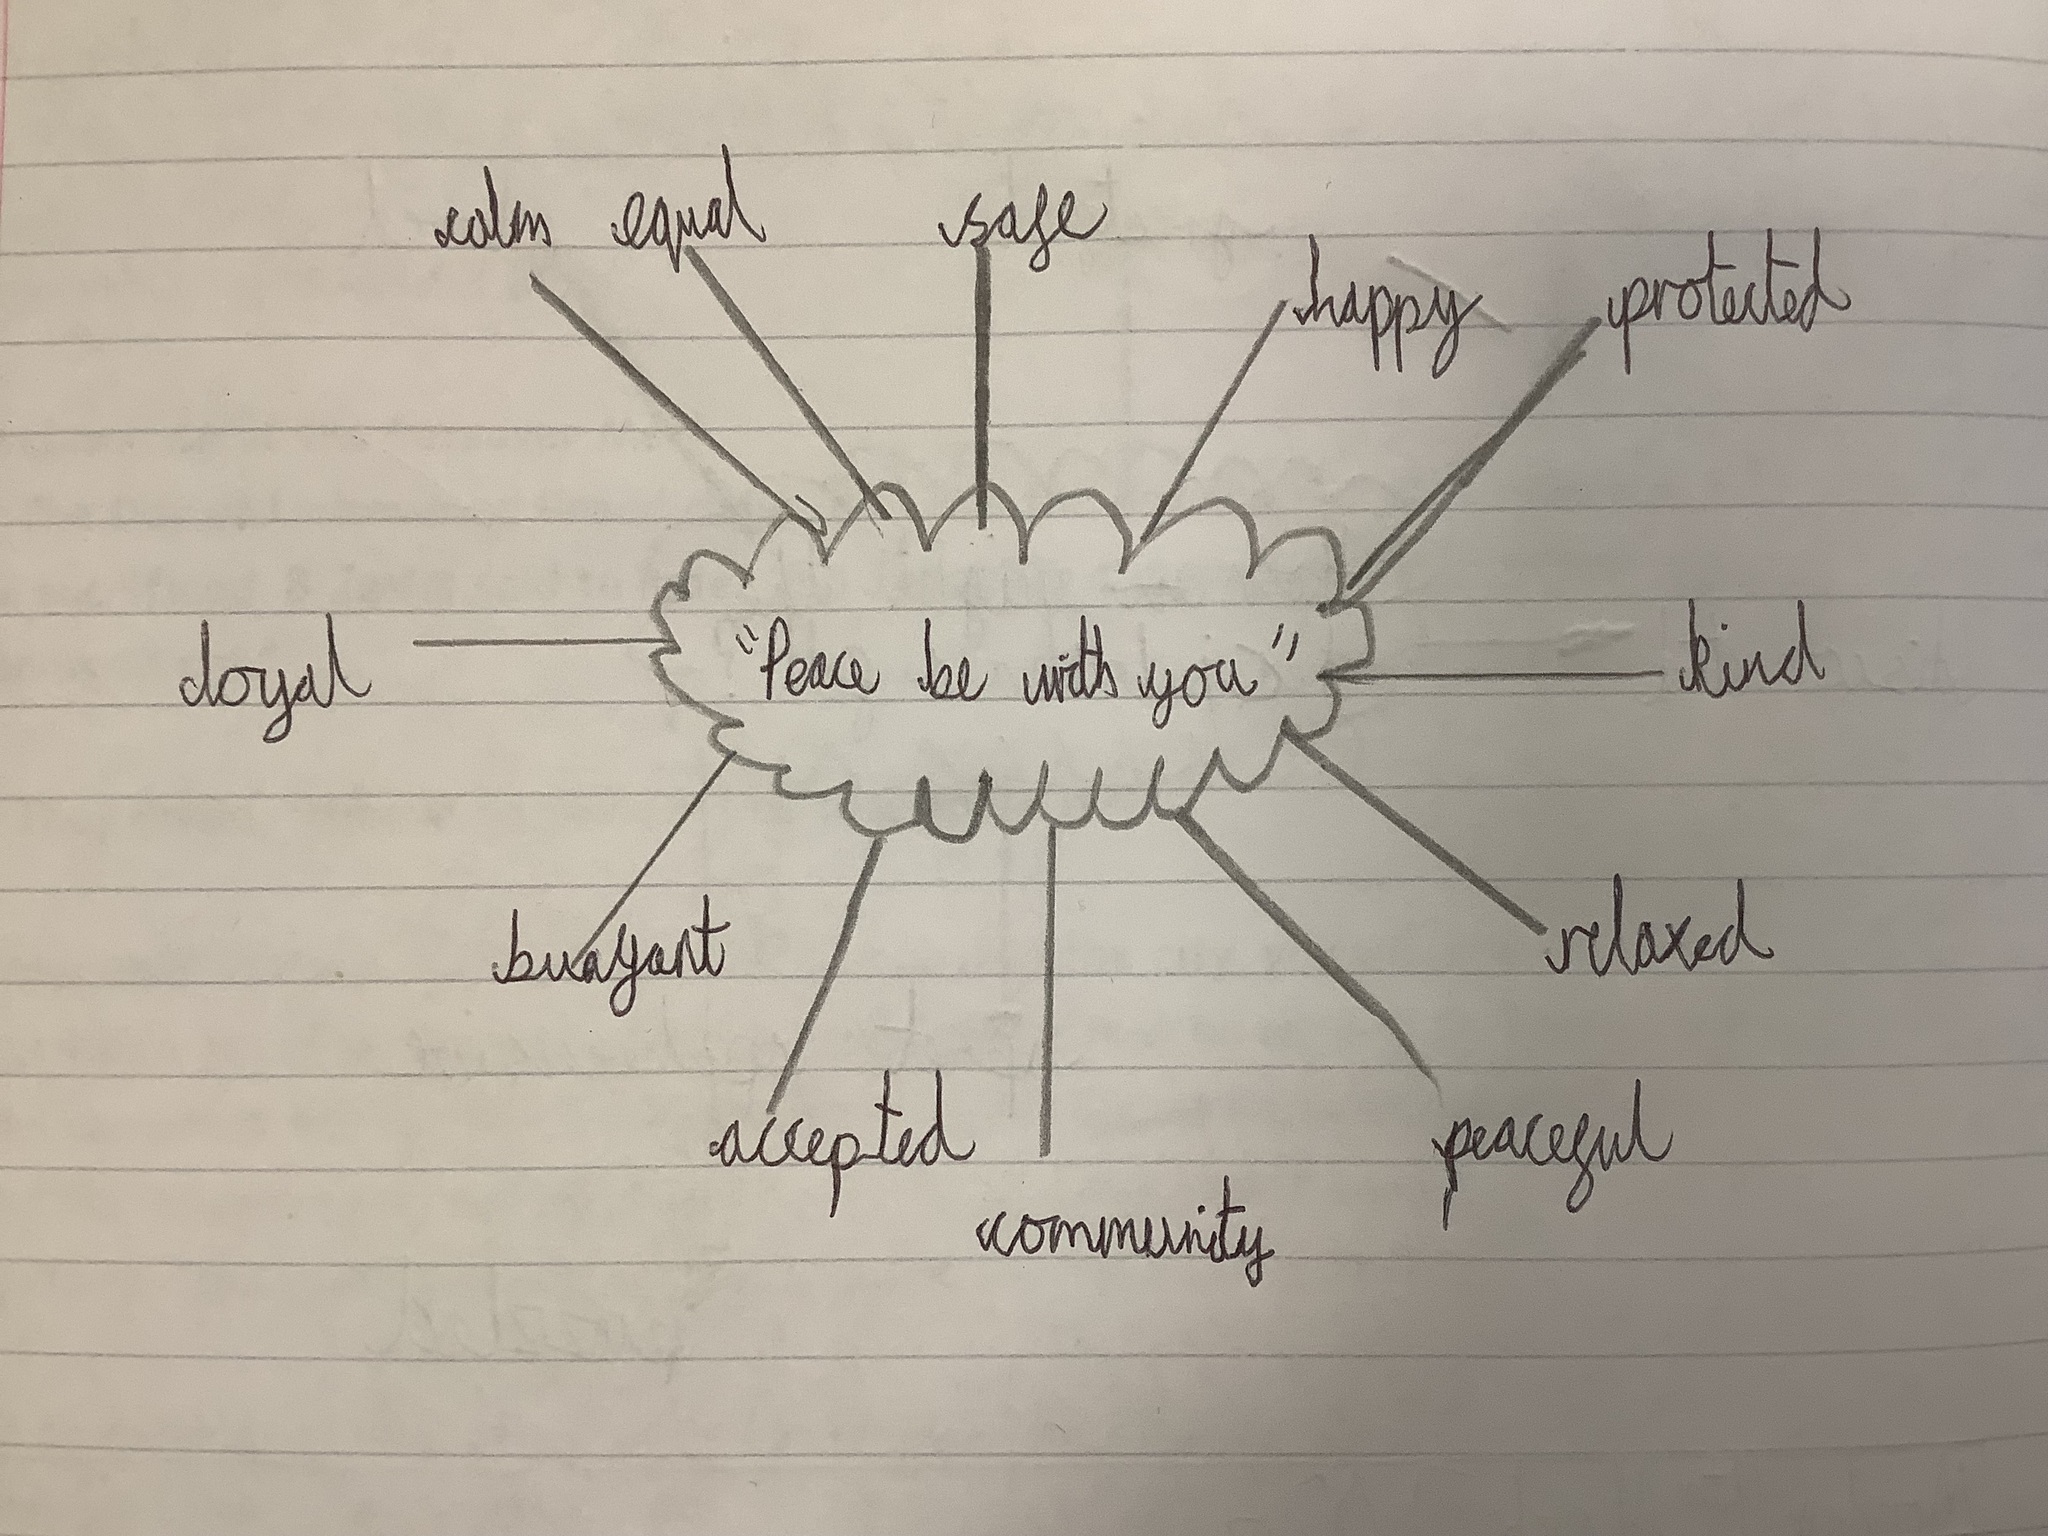 calm equal safe
happy protected
"Peace be with you"
loyal
kind
buoyant
relaxed
accepted
peaceful
community